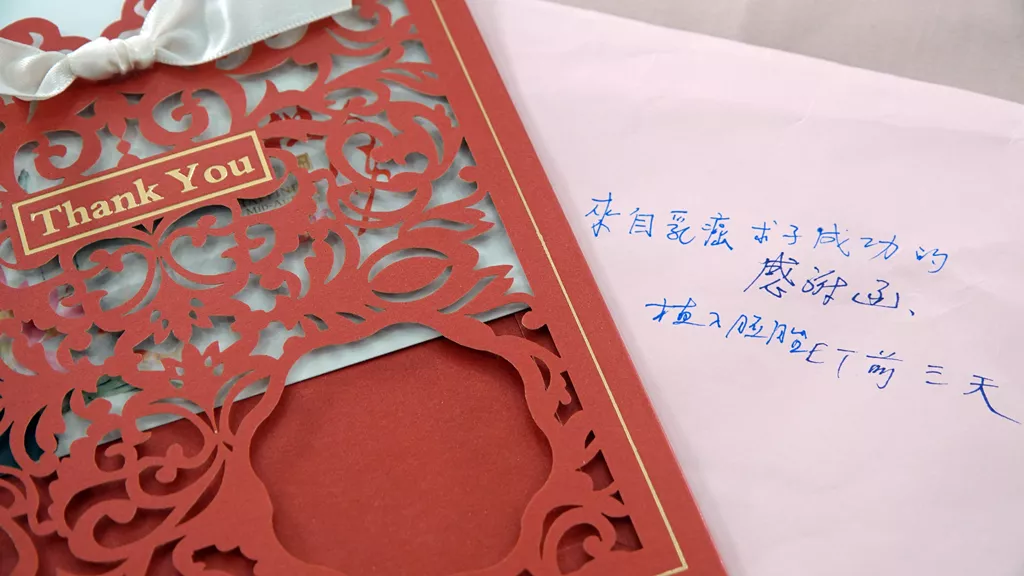 Thank You
來自乳癌求子成功的
感謝函、
植入胚胎ET前三天